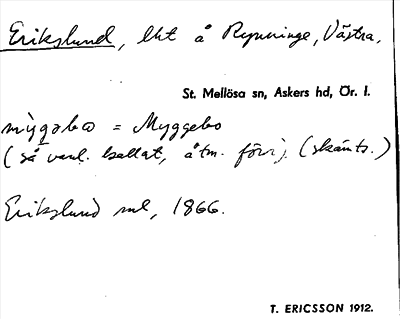 Erikslund, lht å Rynninge, Västra,
St. Mellösa sn, Askers hd, Ör. l.
mỳgəbo = Myggebo
(så vanl. kallat, åtm. förr). (skämts.)
Erikslund ml, 1866.
T. ERICSSON 1912.